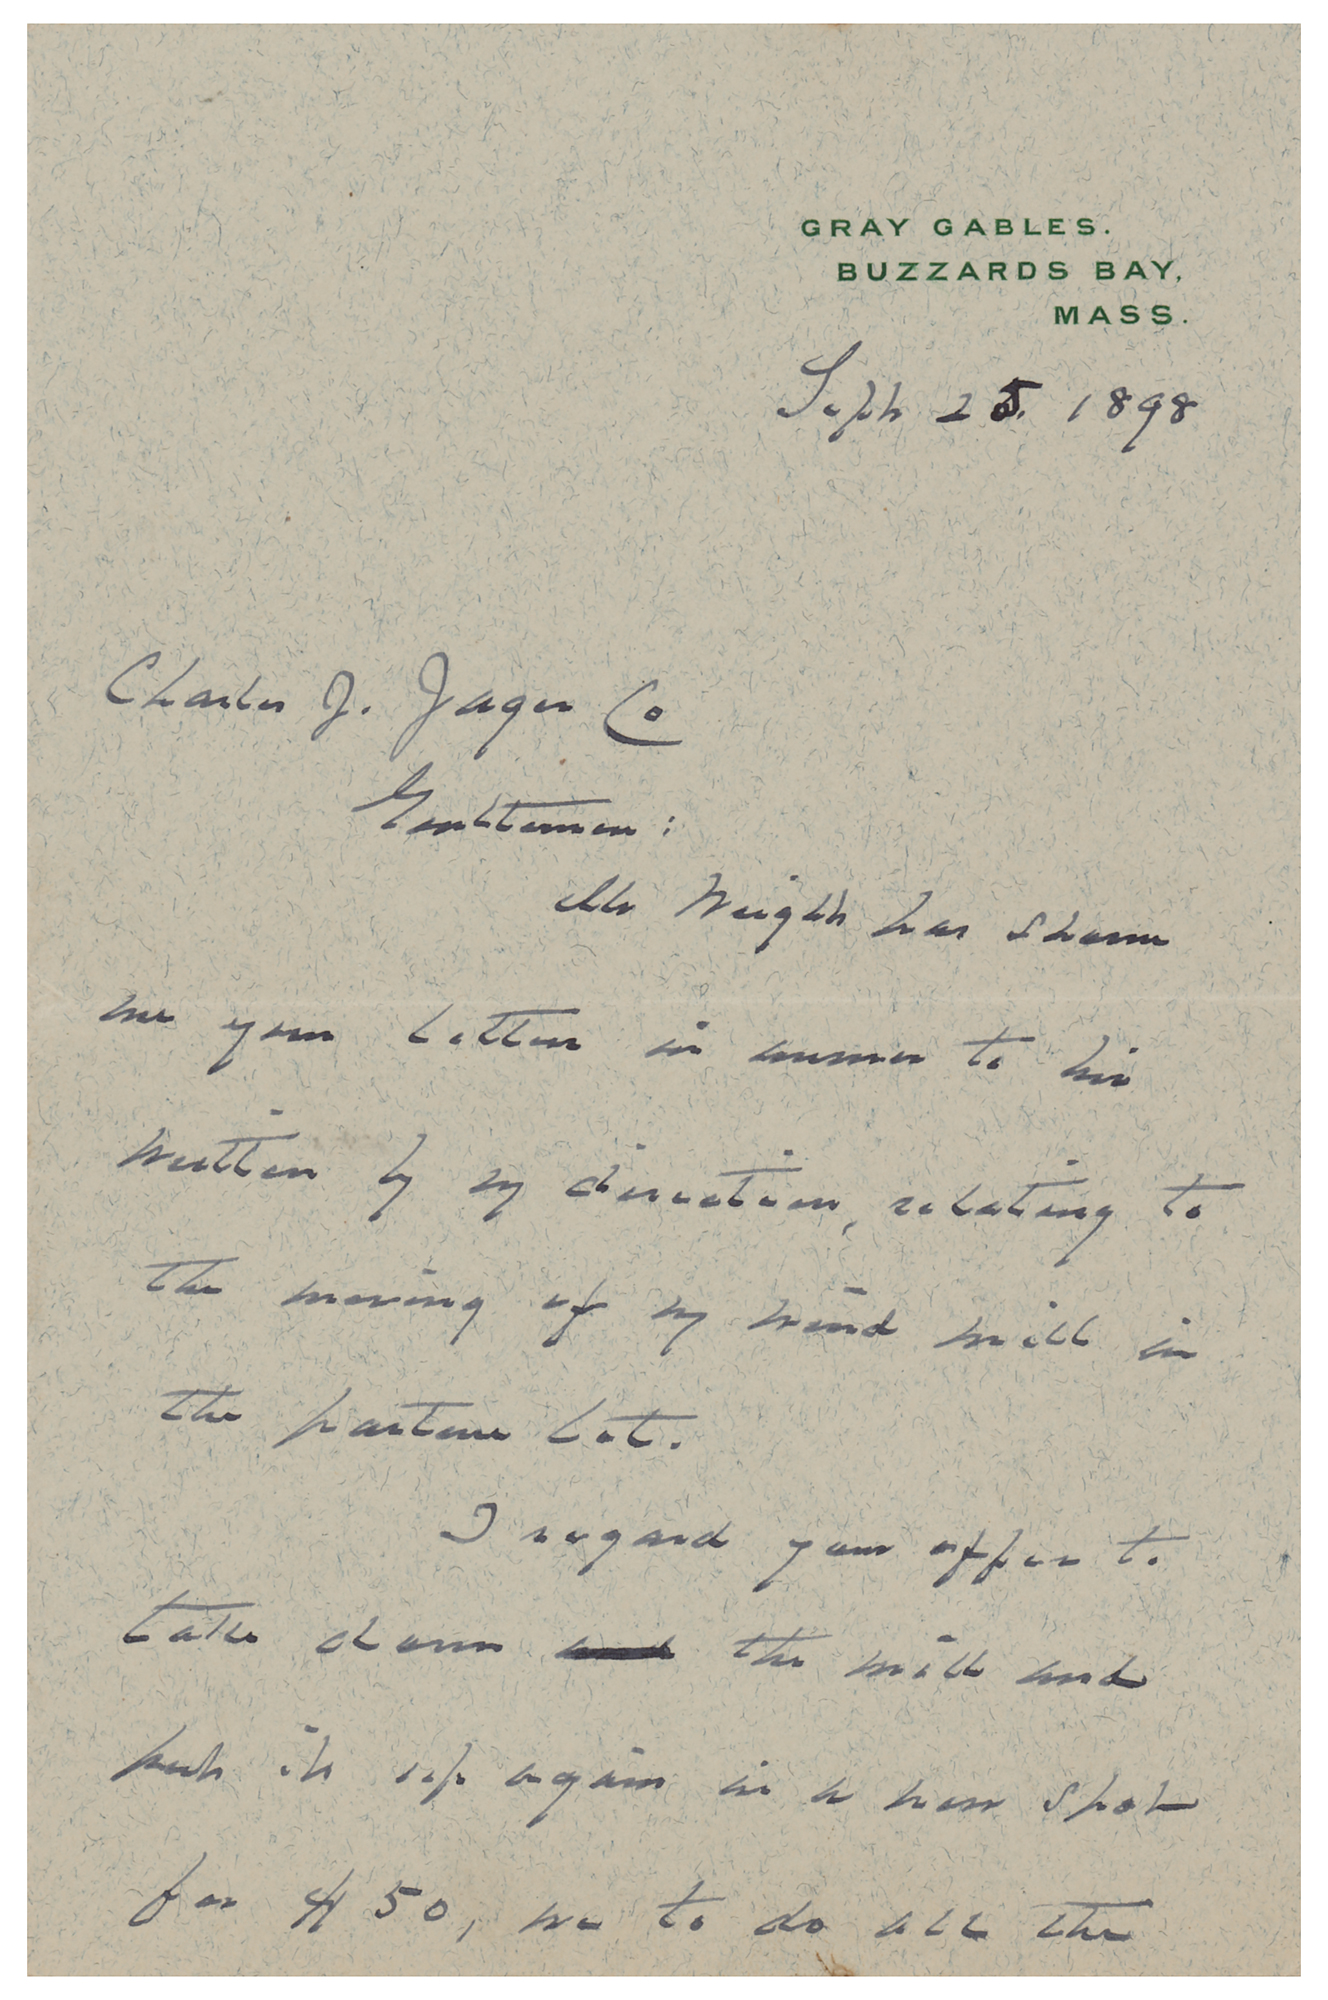 GRAY GABLES.
BUZZARDS BAY,
MASS.
Sept 25. 1898
Charles J. Jager Co
Gentlemen:
Mr Wright has shown
me your letter in answer to his
written by my direction, relating to
the moving of my wind mill in
the pasture lot.
I regard your offer to
take down and the mill and
put it up again in a new spot
for $50, we to do all the